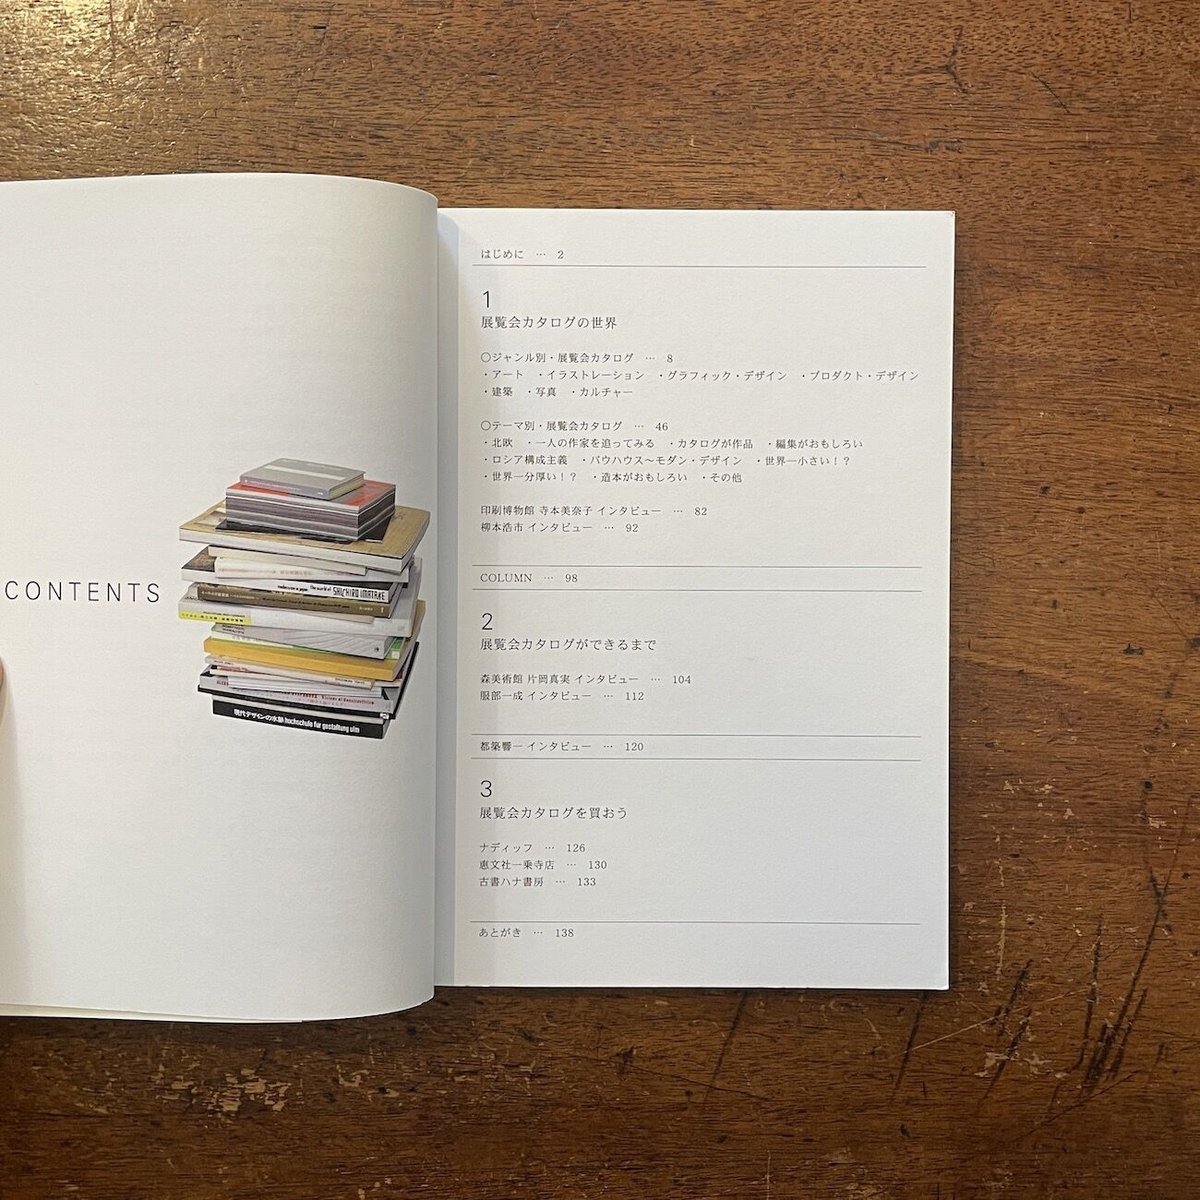 CONTENTS
SHICHIRO IMATAKE
現代デザインの水脈 hochschule für gestaltung ulm
はじめに … 2
1
展覧会カタログの世界
〇ジャンル別・展覧会カタログ … 8
・アート ・イラストレーション ・グラフィック・デザイン ・プロダクト・デザイン
・建築 ・写真 ・カルチャー
〇テーマ別・展覧会カタログ … 46
・北欧 ・一人の作家を追ってみる ・カタログが作品 ・編集がおもしろい
・ロシア構成主義 ・バウハウス〜モダン・デザイン ・世界一小さい!?
・世界一分厚い!? ・造本がおもしろい ・その他
印刷博物館 寺本美奈子 インタビュー … 82
柳本浩市 インタビュー … 92
COLUMN … 98
2
展覧会カタログができるまで
森美術館 片岡真実 インタビュー … 104
服部一成 インタビュー … 112
都築響一 インタビュー … 120
3
展覧会カタログを買おう
ナディッフ … 126
恵文社一乗寺店 … 130
古書ハナ書房 … 133
あとがき … 138